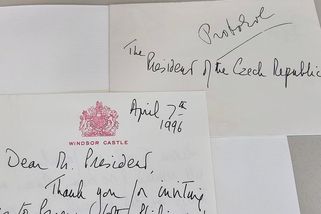 Protokol
The
President of the Czech Republic
April 7th
1996
WINDSOR CASTLE
Dear Mr. President,
Thank you for inviting